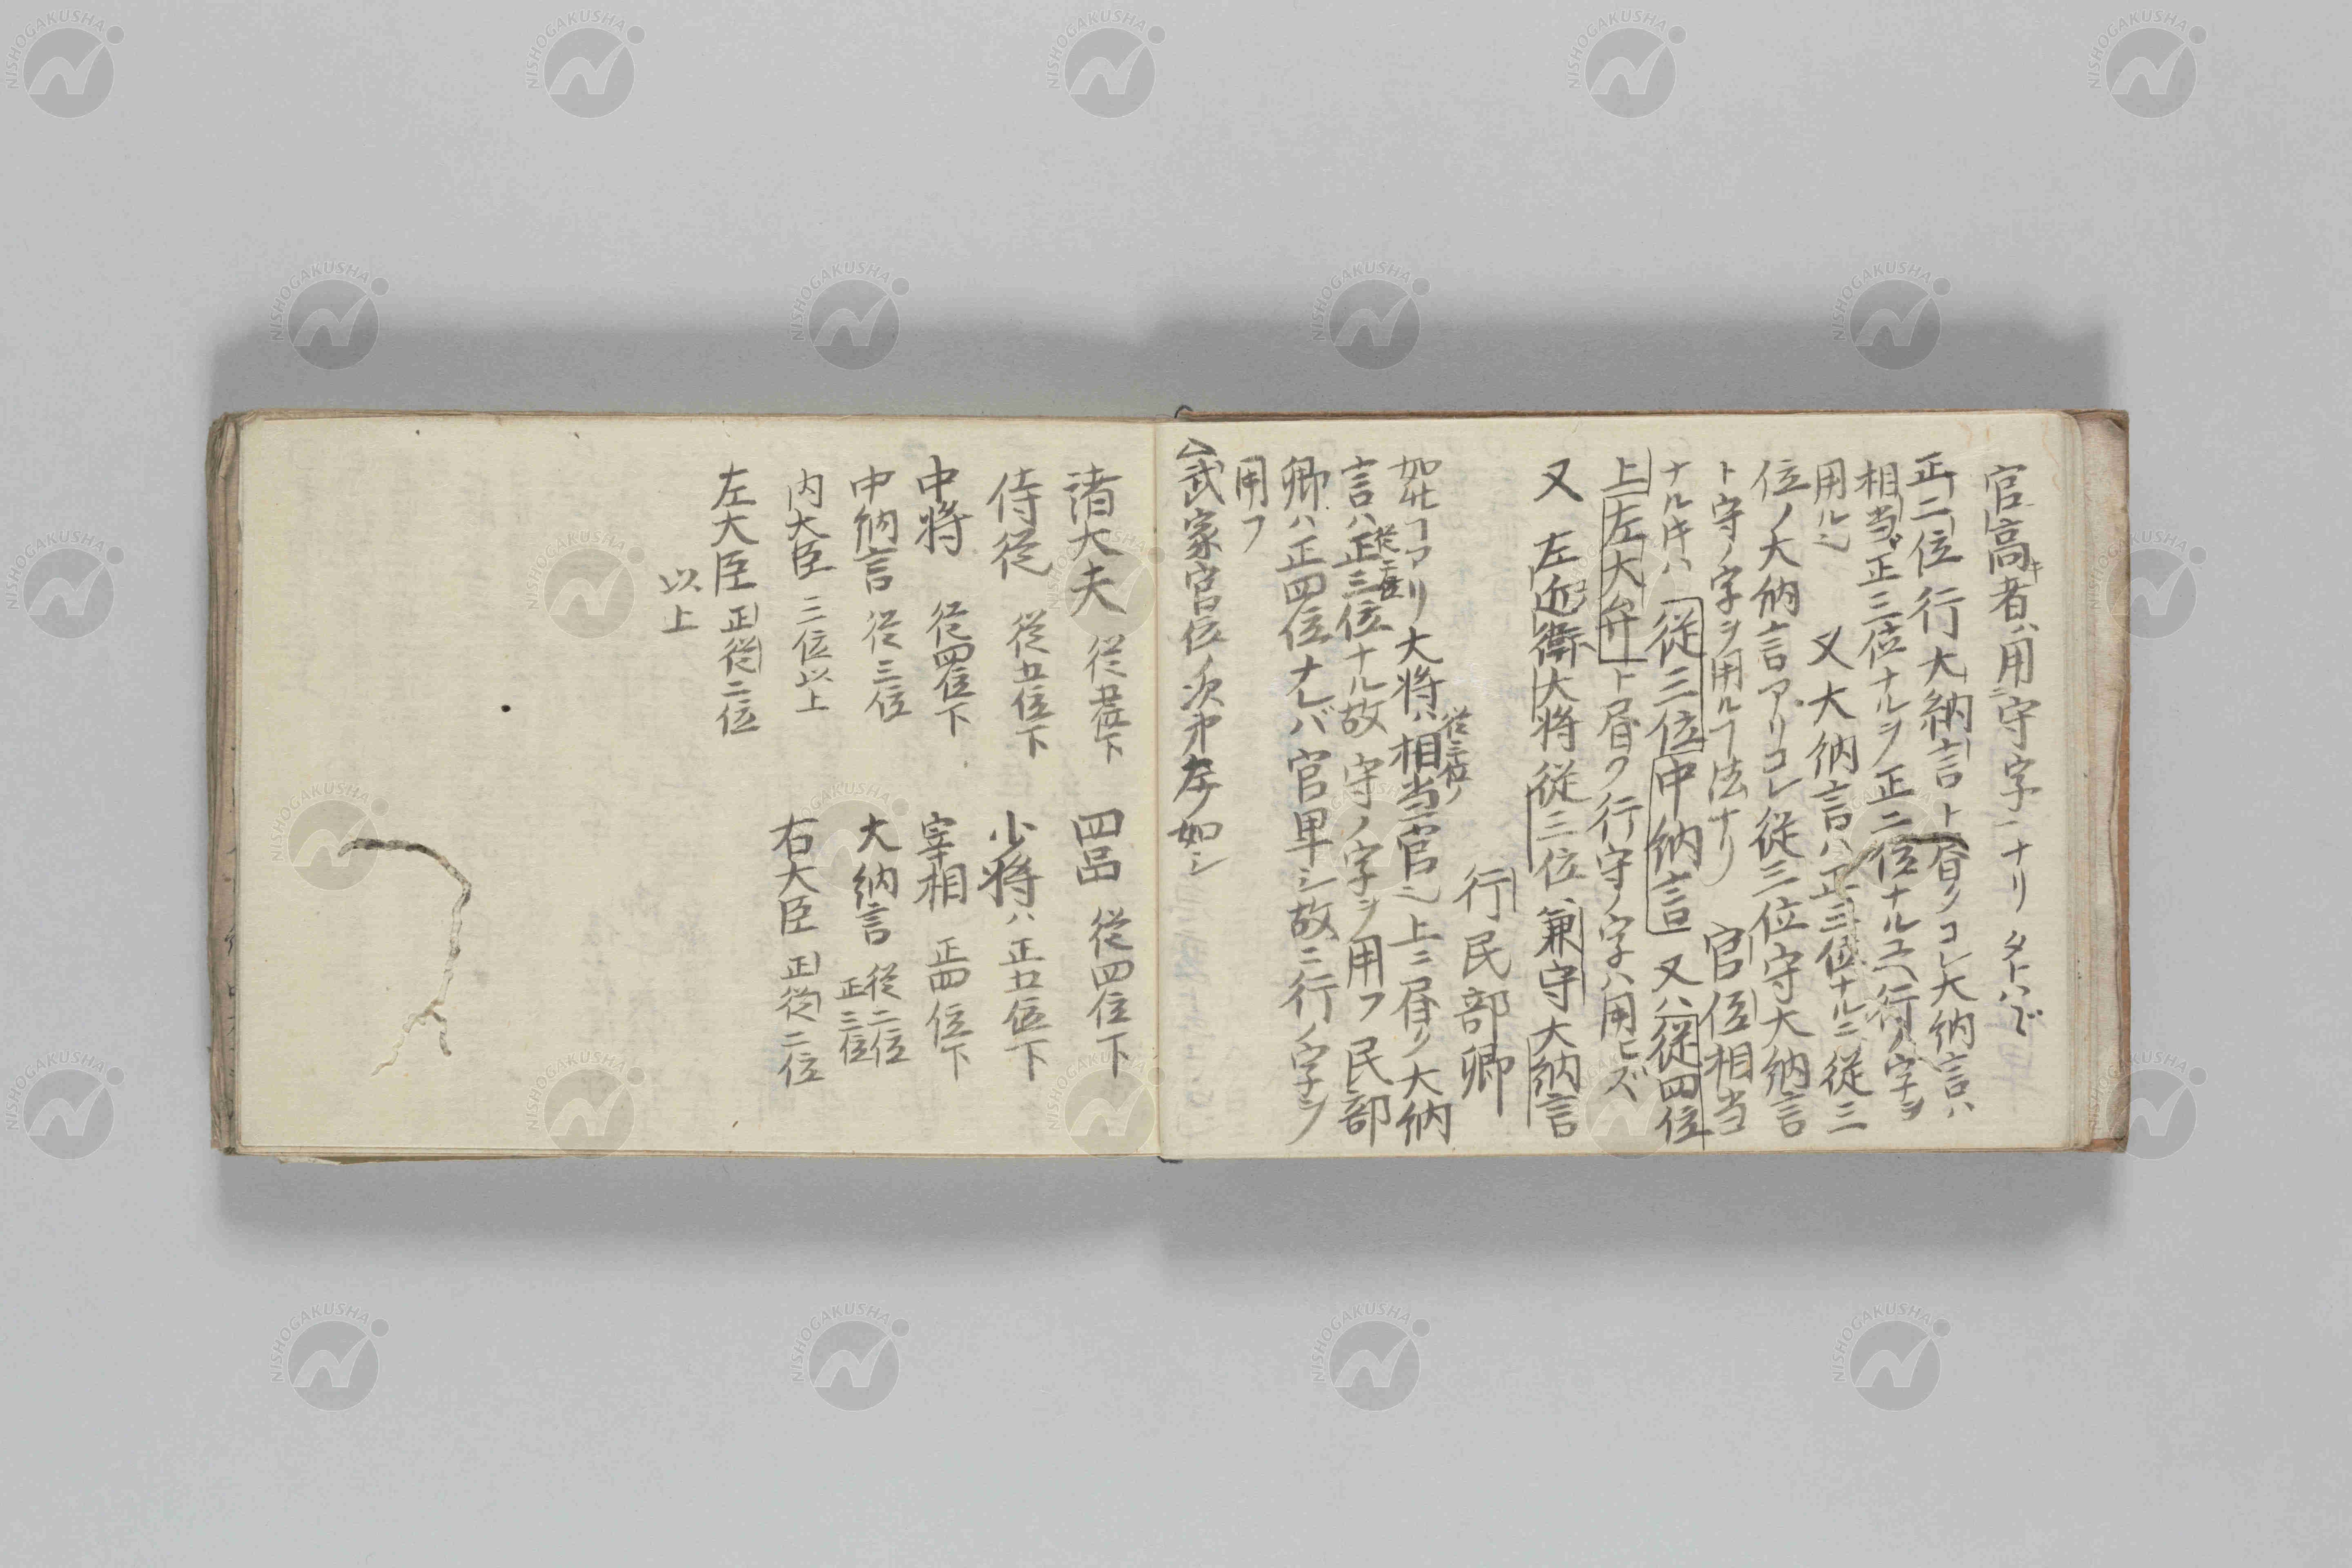 官高キ者ハ用守字ニナリ タトヘバ
正二位 行大納言ト昼クコレ大納言ハ
相当ガ正三位ナルヲ正二位ナルユヘ行ノ字ヲ
用ル也 又大納言ハ正三位ナルニ従三
位ノ大納言アリコレ従三位守大納言
ト守ノ字ヲ用ルヿ法ナリ 官位相当
ナルキハ 従三位中納言 又ハ従四位
上左大弁ト昼ク行守ノ字ハ用ヒズ
又 左近衛大将従三位兼守大納言
行民部卿
如此ヿアリ大将ハ従三位ノ相当官也上ニ昼ク大納
言ハ正三位ナル故守ノ字ヲ用フ民部
卿ハ正四位ナレバ官卑シ故ニ行ノ字ヲ
用フ
△武家官位ノ次第左ノ如シ
諸大夫 従五位下 四品 従四位下
侍従 従五位下 少将ハ正五位下
中将 従四位下 宰相 正四位下
中納言 従三位 大納言 従二位 正三位
内大臣 三位以上 右大臣 正従二位
左大臣 正従二位
以上
NISHOGAKUSHA